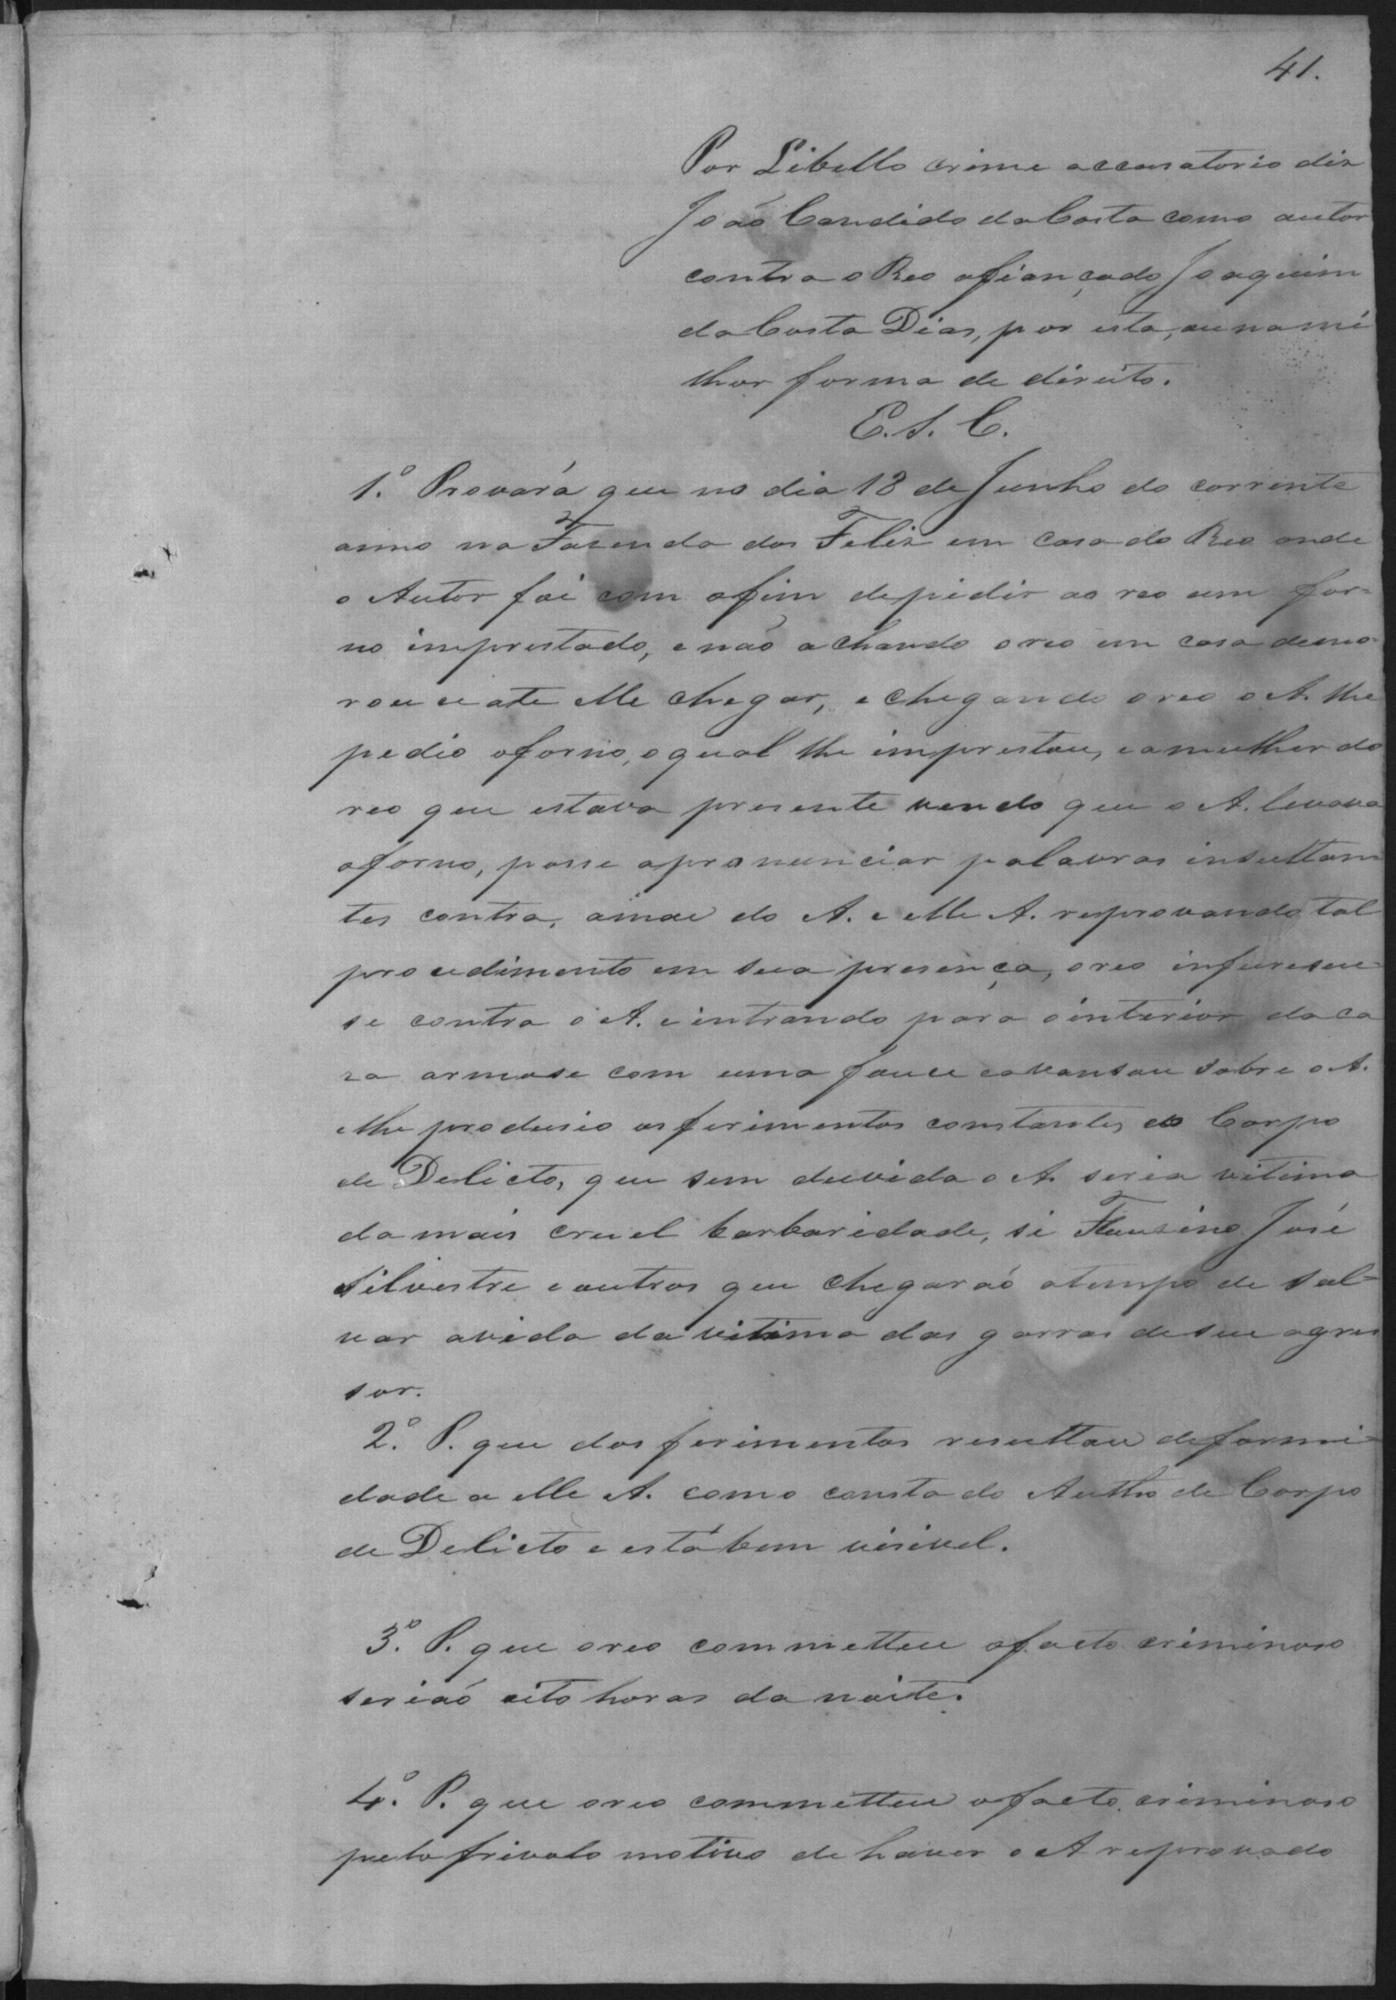 41.
Por Libello crime accusatorio diz
João Candido da Costa como autor
contra o Reo afiançado Joaquim
da Costa Dias, por esta, ou na mi
lhor forma de direito.
E. S. C.
1.º Provará que no dia 18 de Junho do corrente
anno na Fazenda dos Felis em casa do Reo onde
o Autor foi com ofim depidir ao reo um for-
no imprestado, e não achando o reo em casa demo-
rou ce ate elle chegar, e chegando o reo o A. lhe
pedio oforno, o qual lhe imprestou, e a mulher do
reo que estava presente vendo que o A. levava
oforno, posse apronunciar palavras insultan
tes contra, amae do A. e elle A. reprovando tal
procedimento em sua presença, o reo infureceu-
se contra o A. e intrando para ointerior da ca
za armose com uma fouce eavansou sobre o A.
elhe produsio os ferimentos constantes do Corpo
de Delicto, que sem duvida o A. seria vitima
da mais cruel barbaridade, si Flausino José
Silvestre e outros que chegaraó atempo de sal-
var avida da vitima das garras de seu agres
sor.
2.º P. que dos ferimentos resultou deformi-
dade a elle A. como consta do Autho de Corpo
de Delicto e está bem visivel.
3.º P. que oreo commetteu ofacto criminoso
seriaó oito horas da noite.
4.º P. que oreo commetteu ofacto criminoso
pelo frivolo motivo de haver o A reprovado